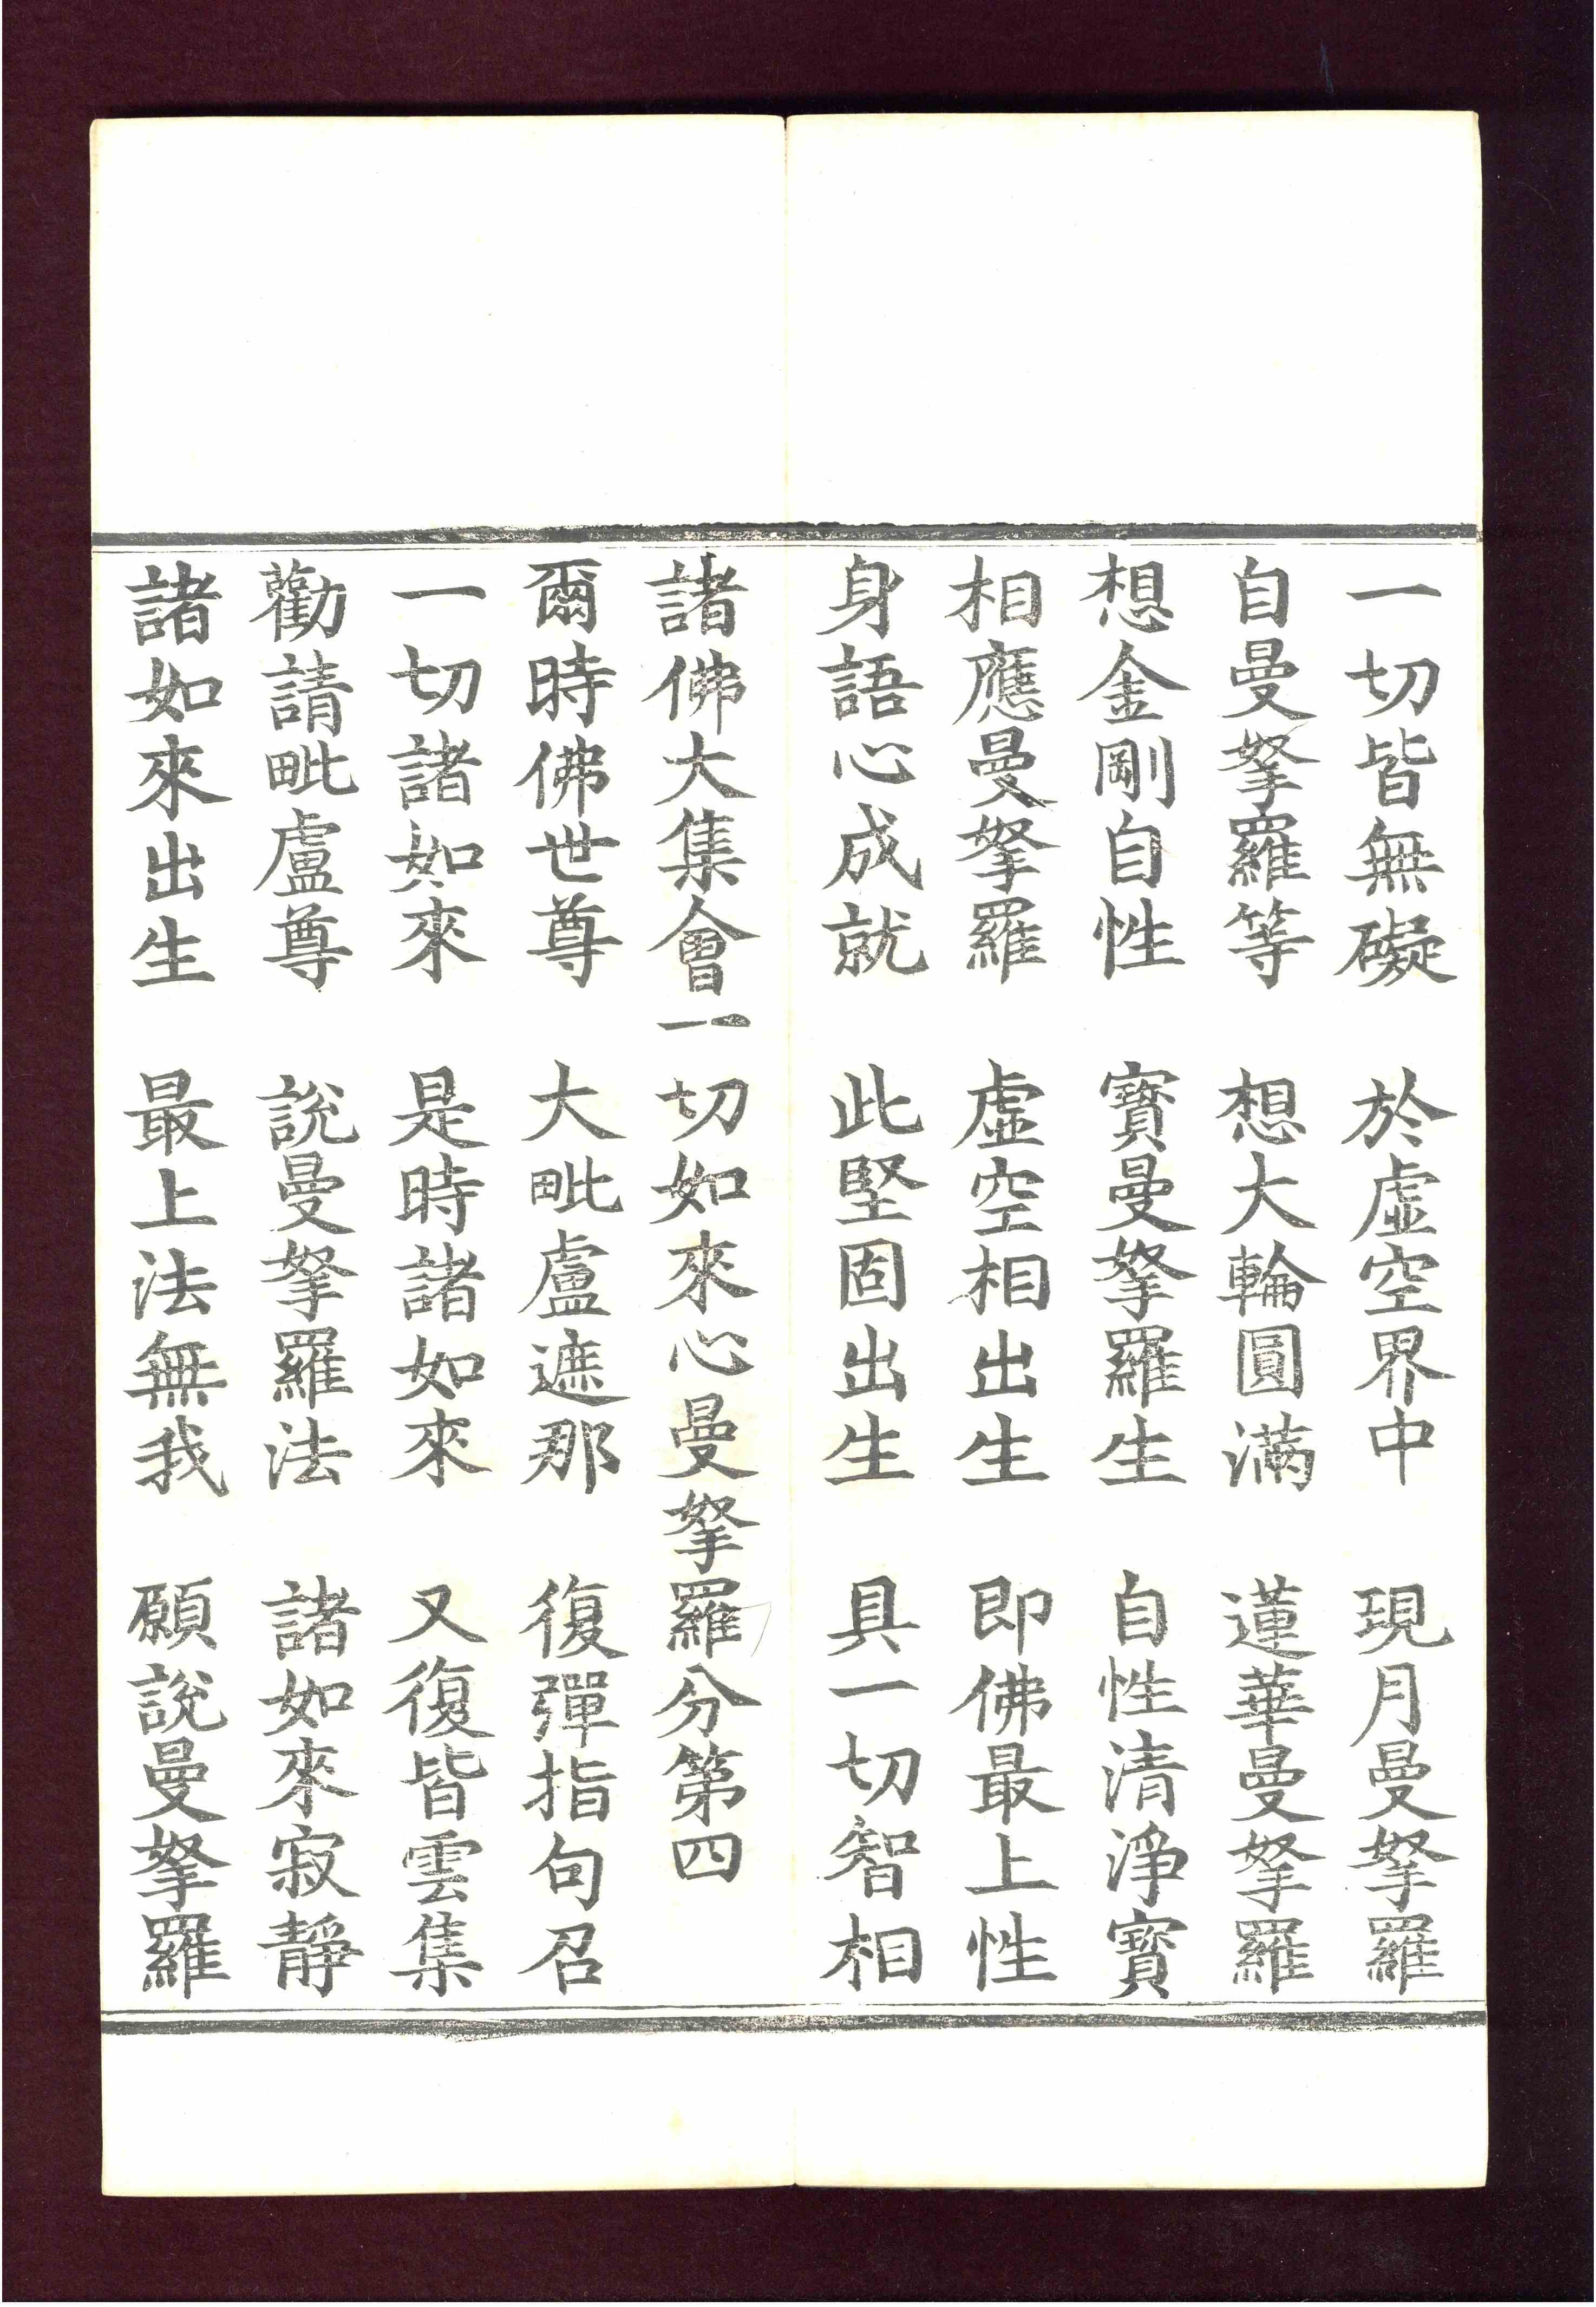 一切皆無礙　於虛空界中　現月曼拏羅
自曼拏羅等　想大輪圓滿　蓮華曼拏羅
想金剛自性　寶曼拏羅生　自性清淨寶
相應曼拏羅　虛空相出生　即佛最上性
身語心成就　此堅固出生　具一切智相
諸佛大集會一切如來心曼拏羅分第四
爾時佛世尊　大毗盧遮那　復彈指句召
一切諸如來　是時諸如來　又復皆雲集
勸請毗盧尊　說曼拏羅法　諸如來寂靜
諸如來出生　最上法無我　願說曼拏羅